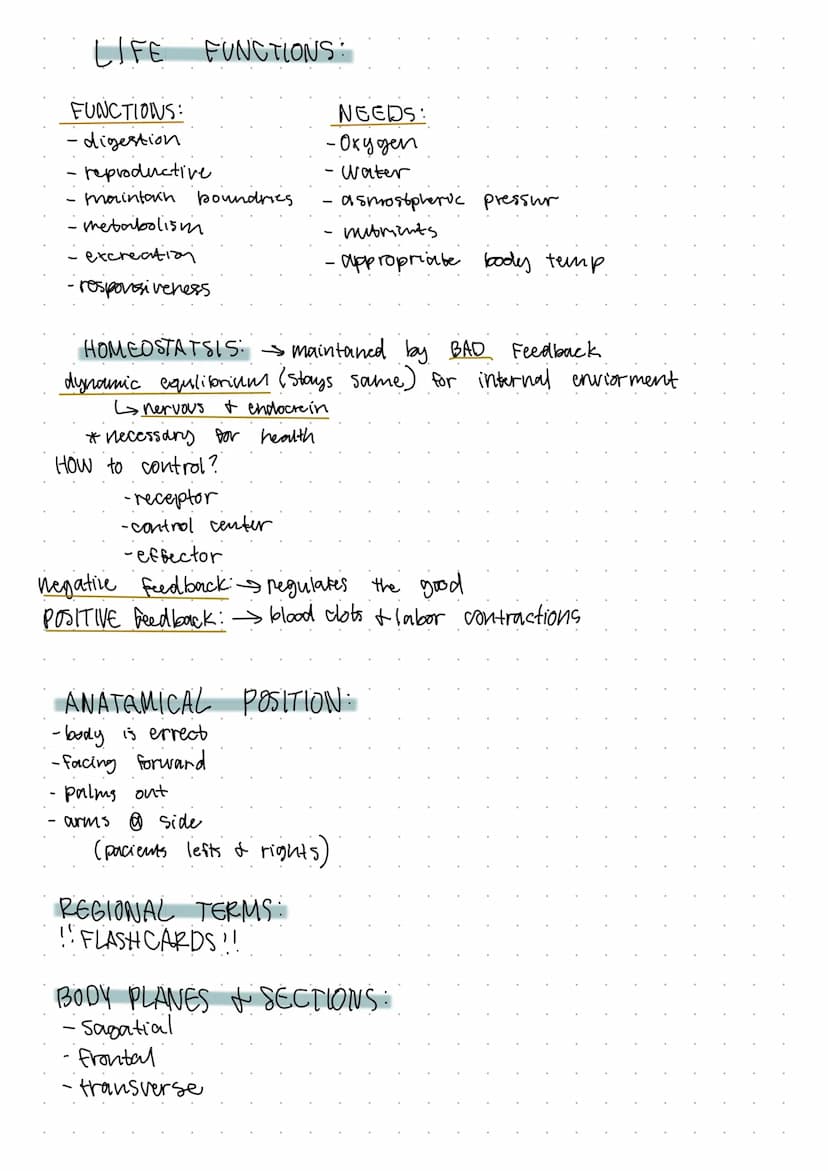 LIFE FUNCTIONS:
FUNCTIONS:
- digestion
- reproductive
- maintain boundries
- metabolism
- excreation
- responsiveness
NEEDS:
- Oxygen
- Water
- asmostpheric pressur
- nutrients
- appropriate body temp
HOMEOSTATSIS: → maintaned by BAD Feedback
dynamic equlibrium (stays same) for internal enviorment
↳ nervous & endocrein
* necessary for health
HOW to control?
- receptor
- control center
- effector
negative feedback: → regulates the good
POSITIVE feedback: → blood clots & labor contractions
ANATAMICAL POSITION:
- body is errect
- facing forward
- palms out
- arms @ side
(pacients lefts & rights)
REGIONAL TERMS:
!! FLASHCARDS !!
BODY PLANES & SECTIONS:
- Sagatial
- frontal
- transverse